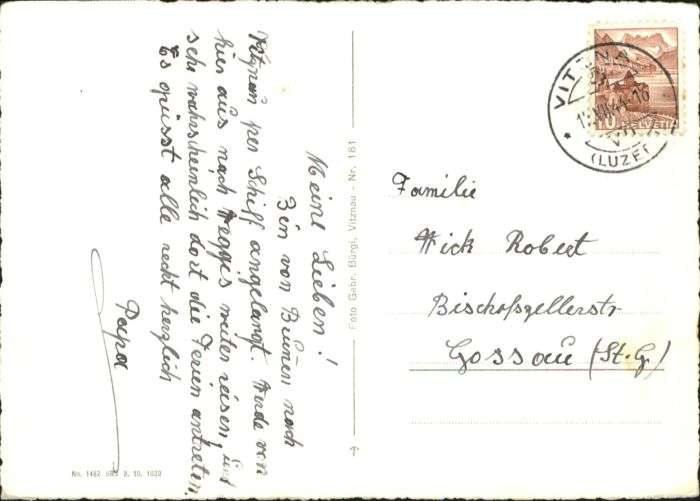 Meine Lieben!
Bin von Brunnen nach
Vitznau per Schiff angelangt. Werde von
hier aus nach Weggis weiter reisen, und
sehr wahrscheinlich dort die Ferien antreten.
Es grüsst alle recht herzlich
Papa
Foto Gebr. Bürgi, Vitznau - Nr. 181
No. 1482 3. 10. 1933
VITZNAU
(LUZE
10 HELVETIA
Familie
Wick Robert
Bischofszellerstr
Gossau (St. G.)